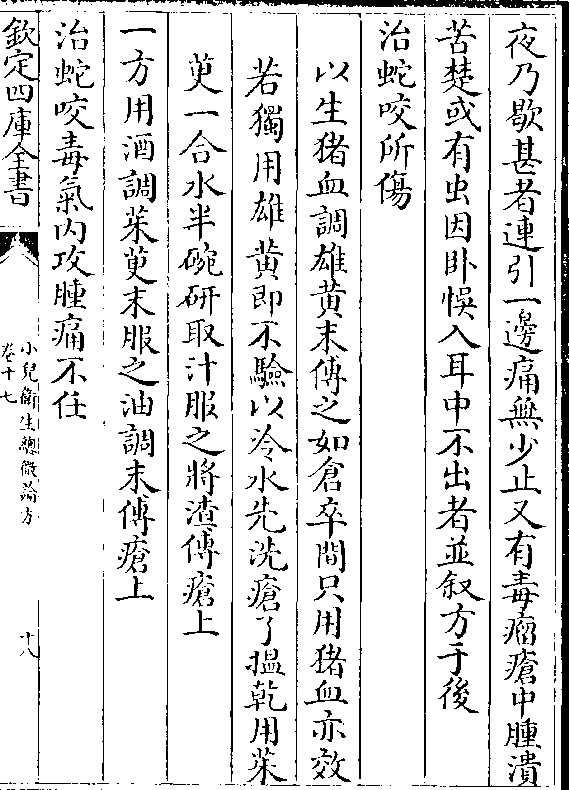 夜乃歇甚者連引一邊痛無少止又有毒瘤瘡中腫潰
苦楚或有虫因卧悞入耳中不出者並叙方于後
治蛇咬所傷
以生猪血調雄黄末傅之如倉卒間只用猪血亦效
若獨用雄黄即不驗以冷水先洗瘡了揾乾用茱
萸一合水半碗研取汁服之將渣傅瘡上
一方用酒調茱萸末服之油調末傅瘡上
治蛇咬毒氣内攻腫痛不任
欽定四庫全書
小兒衛生總微論方
卷十七
十八